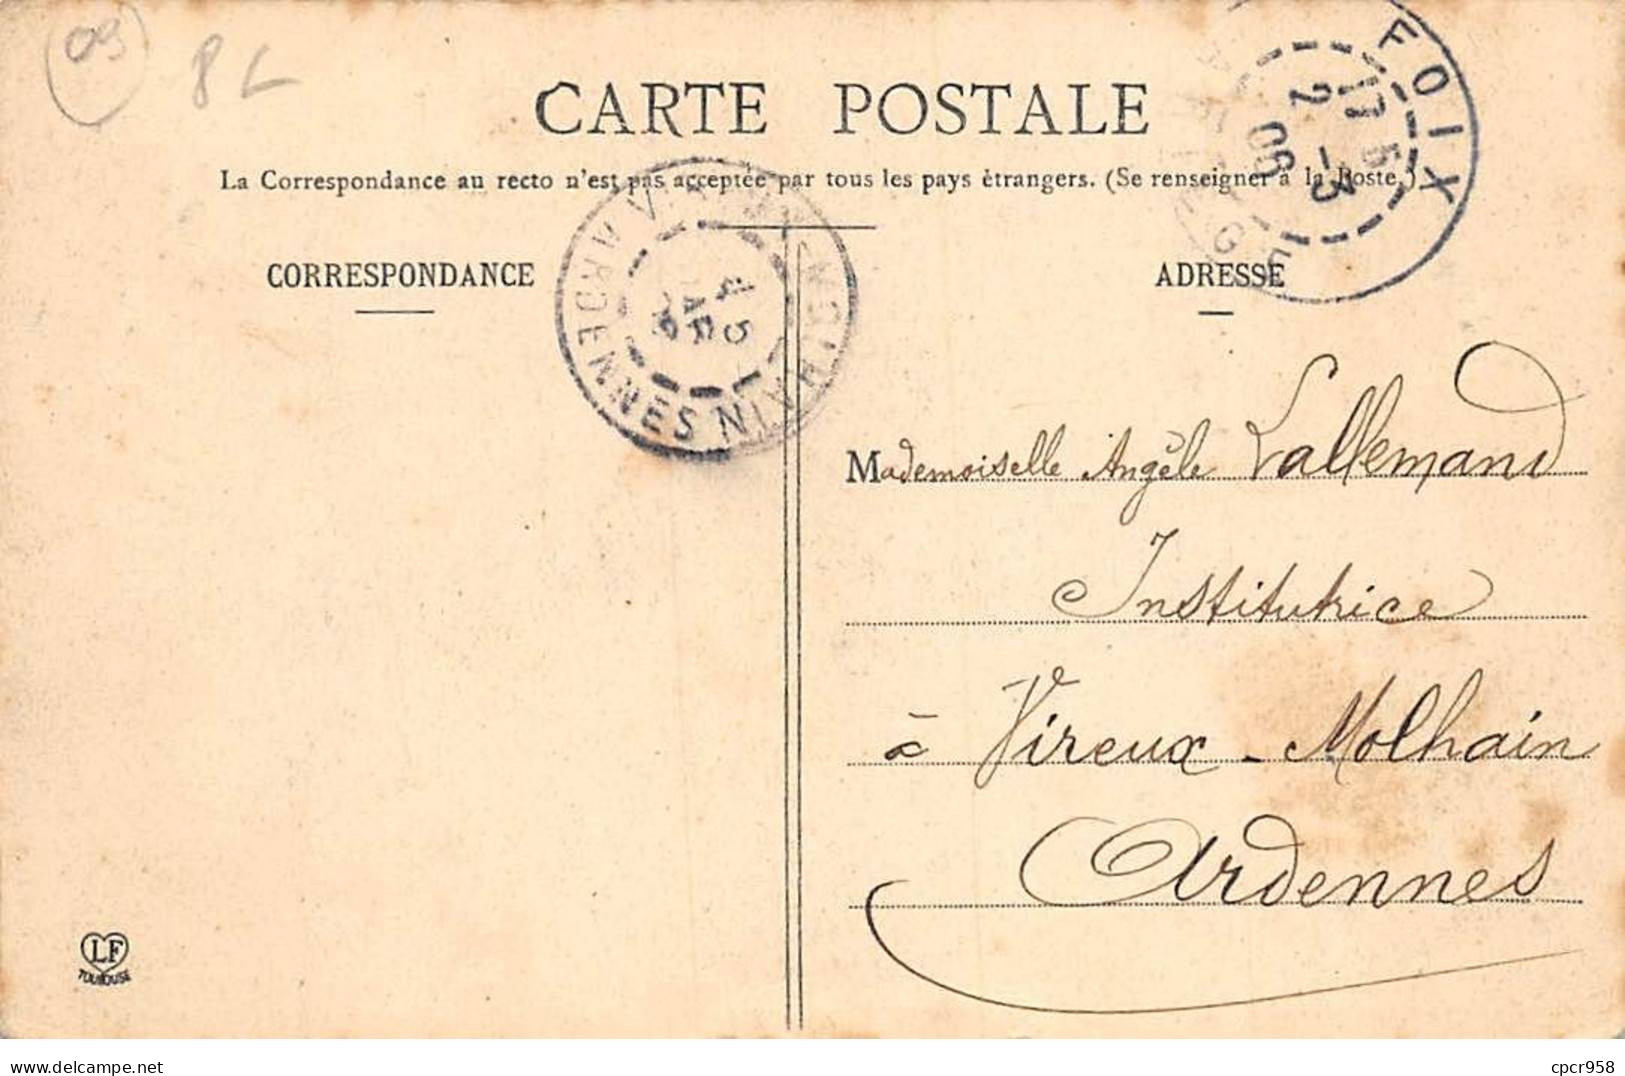 09
8L
CARTE POSTALE
La Correspondance au recto n'est pas acceptée par tous les pays étrangers. (Se renseigner à la Poste.)
FOIX
17 5
2 -3
09
ARDENNES
4 5
MAR
CORRESPONDANCE
ADRESSE
Mademoiselle Angèle Lallemand
Institutrice
à Vireux-Molhain
Ardennes
LF
TOULOUSE
delcampe.net
cpcr958